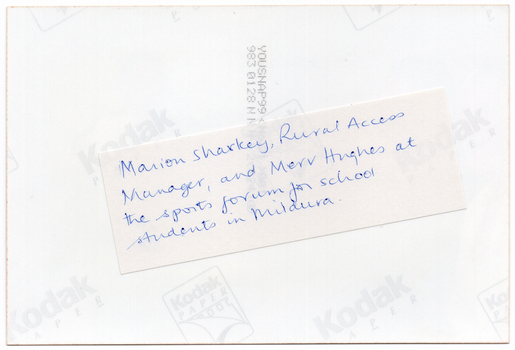 YOUSNAP99
983 0128 N N
Marion Sharkey, Rural Access
Manager, and Merv Hughes at
the sports forum for school
students in Mildura.
Kodak
PAPER
Kodak
PAPER
Kodak
PAPER
Kodak
PAPER
Kodak
PAPER